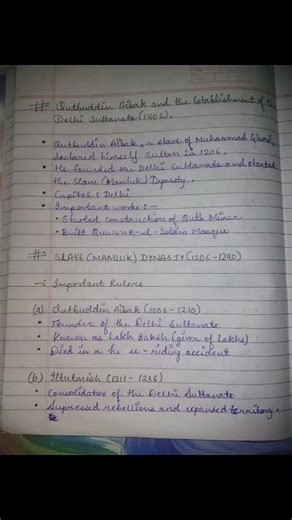 # Qutbuddin Aibak and the Establishment of the
Delhi Sultanate (1206).
• Qutbuddin Aibak, a slave of Muhammad Ghori,
declared himself Sultan in 1206.
• He founded the Delhi Sultanate and started
the Slave (Mamluk) Dynasty.
• Capital: Delhi
• Important works :-
• Started construction of Qutb Minar
• Built Quwwat-ul-Islam Mosque
# SLAVE (MAMLUK) DYNASTY (1206-1290)
→ Important Rulers
(a) Qutbuddin Aibak (1206-1210)
• Founder of the Delhi Sultanate
• Known as Lakh Baksh (giver of Lakhs)
• Died in a riding accident
(b) Iltutmish (1211-1236)
• Consolidator of the Delhi Sultanate
• Supressed rebellions and expanded territory.